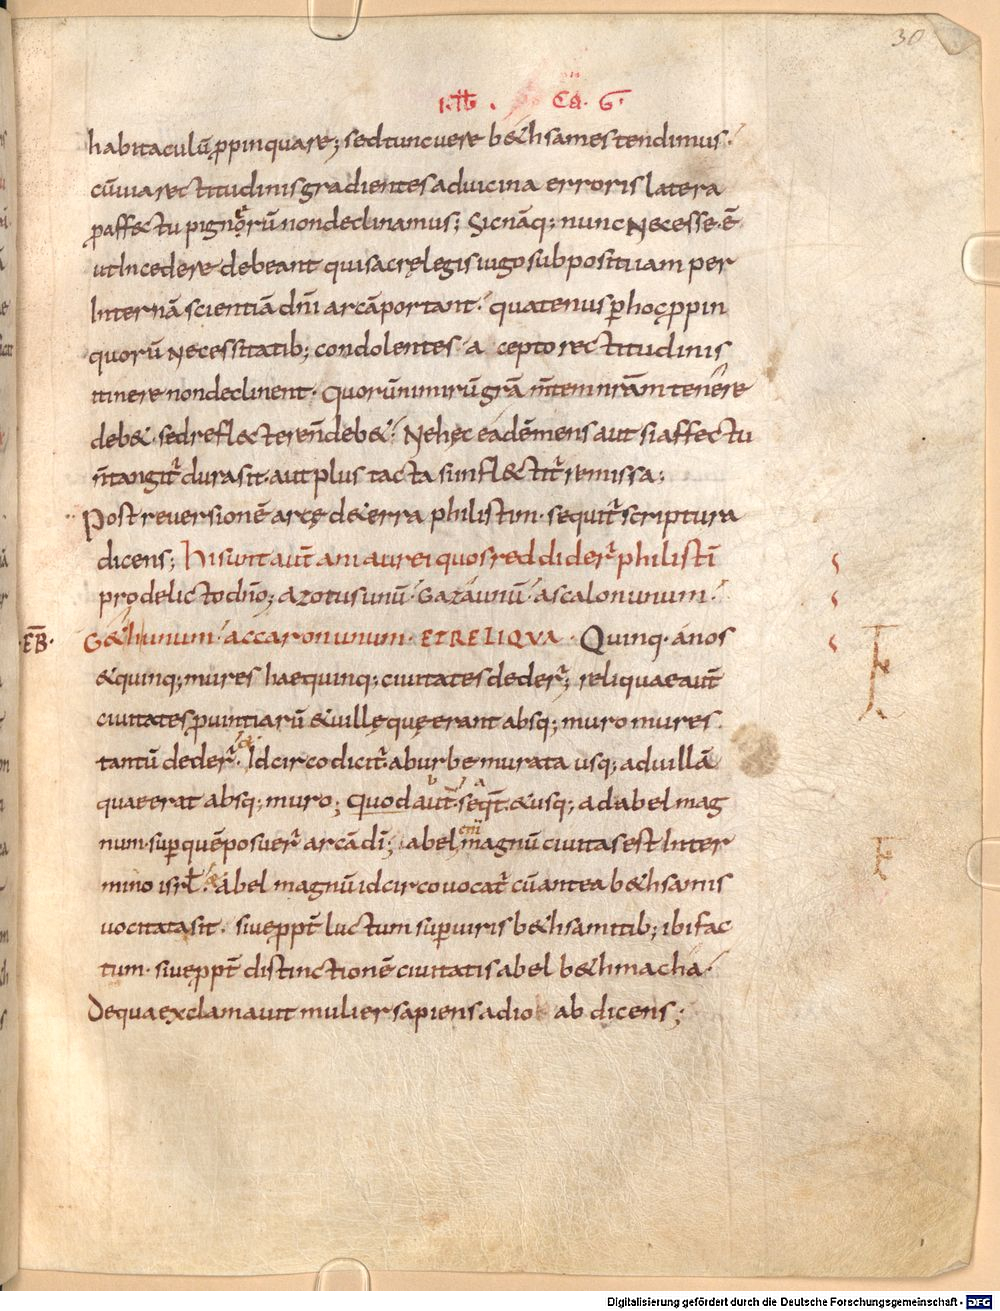 30
Ca. 6.
habitaculū ꝓpinquare; sed tunc uere bethsames tendimus.
cū uia rectitudinis gradientes ad uicina erroris latera
ꝓ affectu pignorū non declinamus; Sic nāq; nunc Necesse. ē
ut Incedere debeant qui sacrę legis iugo subposituam per
Internā scientiā dn̄i arcā portant. quatenus ꝑ hoc ꝓpin
quorū Necessitatib; condolentes a cepto rectitudinis
itinere non declinent. Quorū nimirū grā m̄tem nr̄am tenere
debet. sed reflectere n̄ debet. Ne hęc eadē mens aut si affectu
n̄ tangitr̄ dura sit. aut plus tacta si inflectitr̄ remissa;
Post reversionē arcę de terra philistim. sequitr̄ scriptura
dicens; Hi sunt aut̄ ani aurei quos reddider̄ philistī
pro delicto dn̄o; azotus unū. Gaza unū. ascalon unum.
EB.
Geth unum. accaron unum. ET RELIQVA. Quinq. anos
& quinq; mures hae quinq; ciuitates deder̄; reliquae aut̄
ciuitates ꝓuintiarū & uillę quę erant absq; muro mures
tantū deder̄. Idcirco dicitr̄. ab urbe murata usq; ad uillā
quae erat absq; muro; Quod aut̄ seqt̄. & usq; ad abel mag
num. suꝑ quē posuer̄ arcā dī; abel magnū ciuitas est Inter
mino isrl̄. Abel magnū idcirco uocatr̄ cū antea bethsamis
uocitata sit. siue ꝓpt̄ luctum suꝑ uiris bethsamitib; ibi fac
tum. siue ꝓpt̄ distinctionē ciuitatis abel bethmacha.
De qua exclamauit mulier sapiens ad io ab dicens;
Digitalisierung gefördert durch die Deutsche Forschungsgemeinschaft - DFG